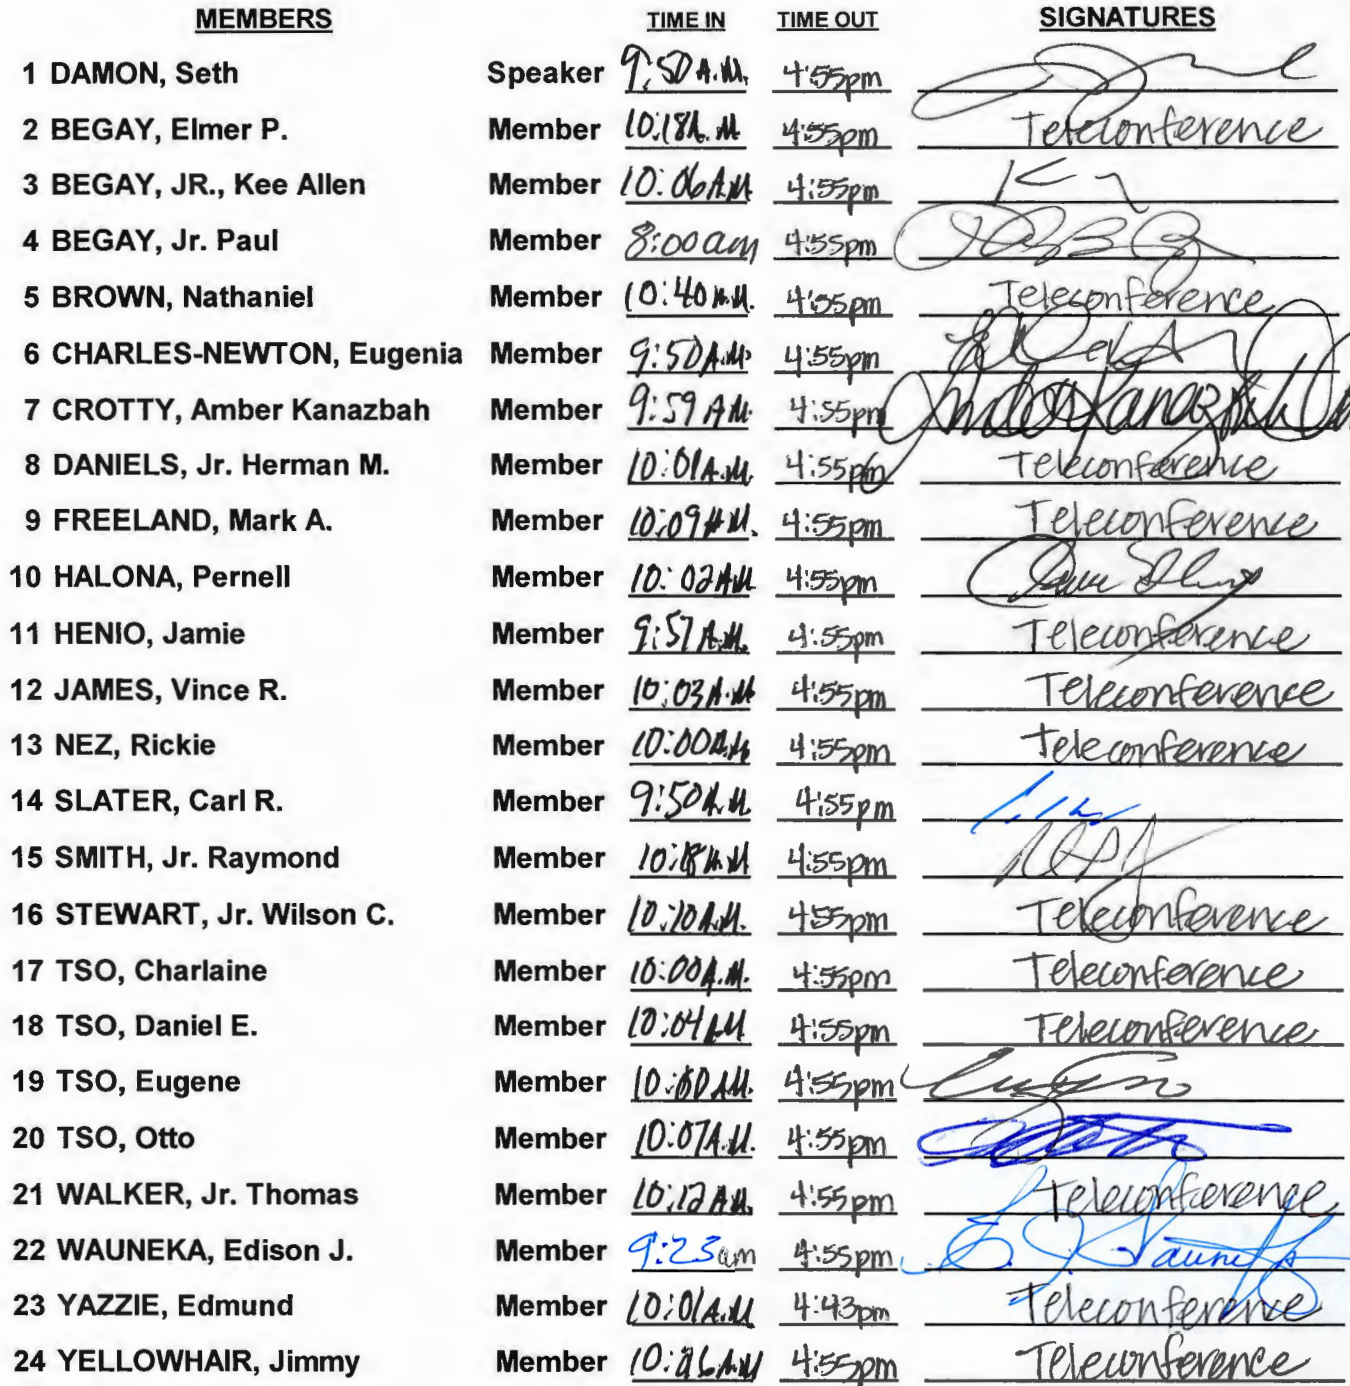 MEMBERS TIME IN TIME OUT SIGNATURES
1 DAMON, Seth Speaker 9:50 A.M. 4:55pm
2 BEGAY, Elmer P. Member 10:18A.M 4:55pm Teleconference
3 BEGAY, JR., Kee Allen Member 10:06A.M 4:55pm
4 BEGAY, Jr. Paul Member 8:00am 4:55pm
5 BROWN, Nathaniel Member 10:40 A.M. 4:55pm Teleconference
6 CHARLES-NEWTON, Eugenia Member 9:50A.M. 4:55pm
7 CROTTY, Amber Kanazbah Member 9:59 A.M. 4:55pm
8 DANIELS, Jr. Herman M. Member 10:01A.M. 4:55pm Teleconference
9 FREELAND, Mark A. Member 10:09A.M. 4:55pm Teleconference
10 HALONA, Pernell Member 10:02AM 4:55pm
11 HENIO, Jamie Member 9:57A.M. 4:55pm Teleconference
12 JAMES, Vince R. Member 10:03A.M 4:55pm Teleconference
13 NEZ, Rickie Member 10:00A.M. 4:55pm Teleconference
14 SLATER, Carl R. Member 9:50A.M. 4:55pm
15 SMITH, Jr. Raymond Member 10:18A.M 4:55pm
16 STEWART, Jr. Wilson C. Member 10:10A.M. 4:55pm Teleconference
17 TSO, Charlaine Member 10:00A.M. 4:55pm Teleconference
18 TSO, Daniel E. Member 10:04AM 4:55pm Teleconference
19 TSO, Eugene Member 10:00AM. 4:55pm
20 TSO, Otto Member 10:07A.M. 4:55pm
21 WALKER, Jr. Thomas Member 10:12AM. 4:55pm Teleconference
22 WAUNEKA, Edison J. Member 9:23am 4:55pm
23 YAZZIE, Edmund Member 10:01A.M 4:43pm Teleconference
24 YELLOWHAIR, Jimmy Member 4:55pm Teleconference